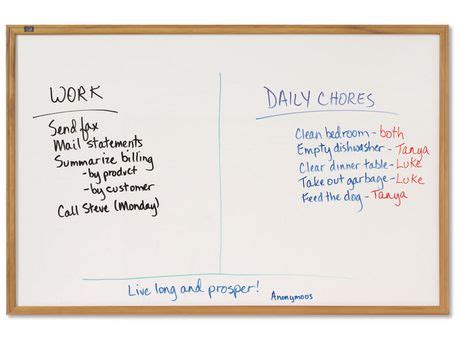 WORK
Send fax
Mail statements
Summarize billing
-by product
-by customer
Call Steve (Monday)
DAILY CHORES
Clean bedroom - both
Empty dishwasher - Tanya
Clear dinner table - Luke
Take out garbage - Luke
Feed the dog - Tanya
Live long and prosper!
Anonymous